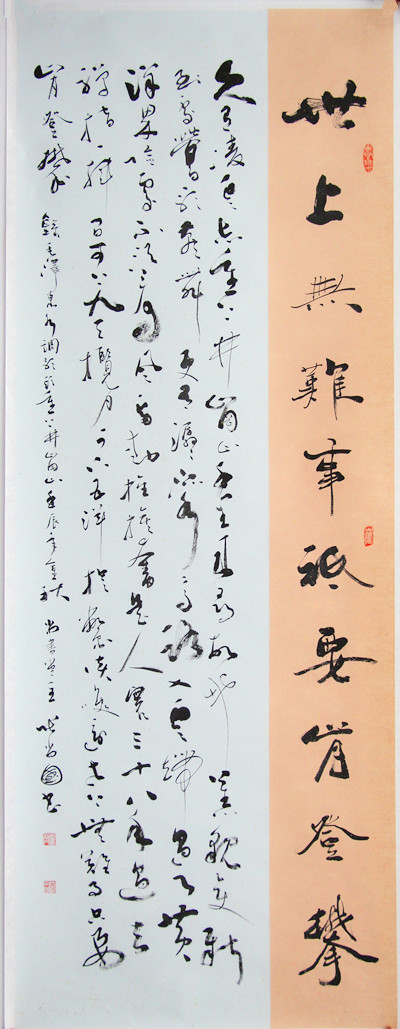 世上無難事祗要肯登攀
久有凌雲志重上井岡山千里來尋故地舊貌變新
到處鶯歌燕舞更有潺潺流水高路入雲端過了黃
洋界險處不須看風雷動旌旗奮是人寰三十八年過去
彈指一揮間可上九天攬月可下五洋捉鱉談笑還世上無難事只要
肯登攀 錄毛澤東水調歌頭重上井岡山壬辰年秋 尚書堂主 尚國書